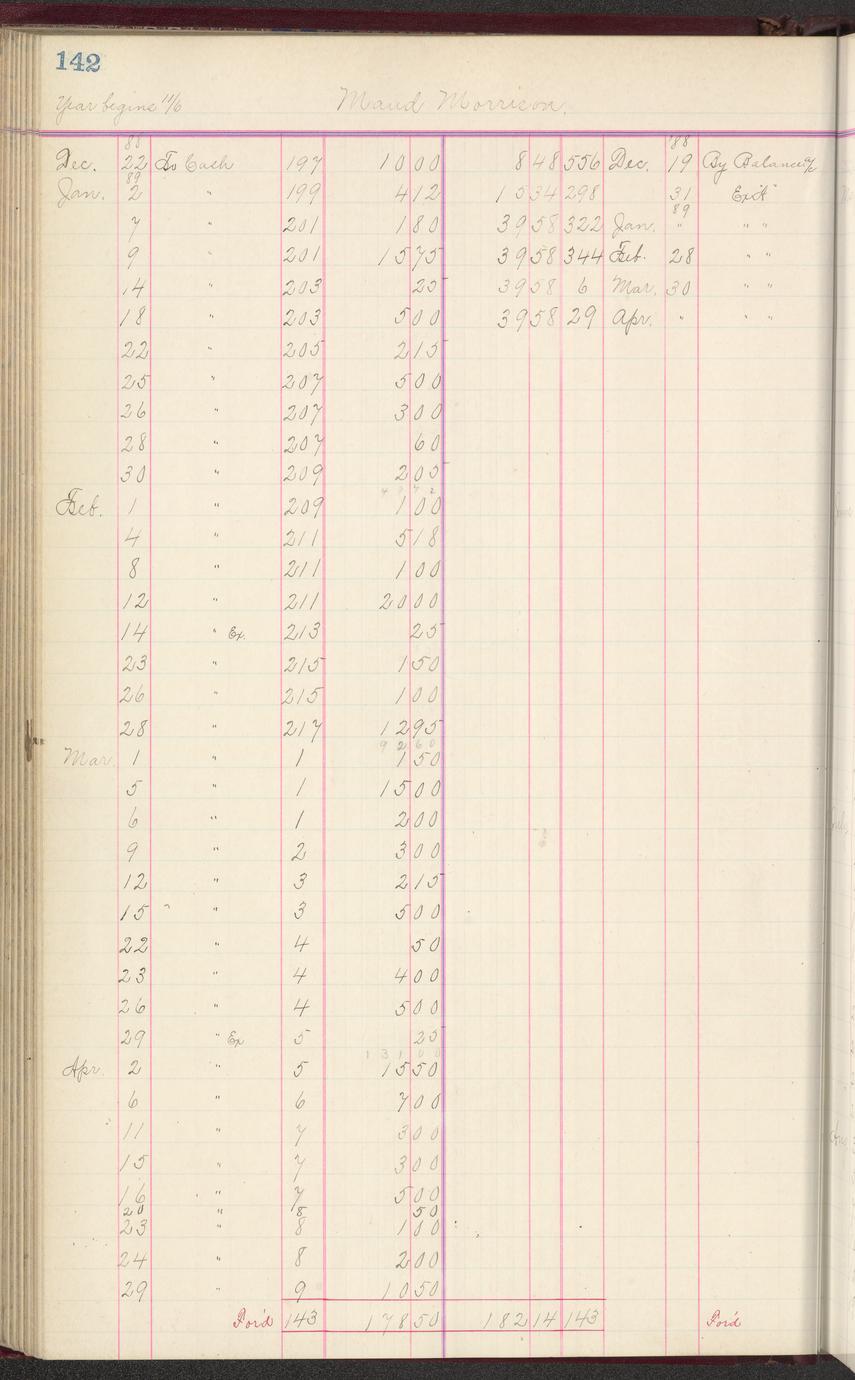 142
Year begins 11/6 Maud Morrison.
88 '88
Dec. 22 To Cash 197 10 00 8 48 556 Dec. 19 By Balance
89
Jan. 2 " 199 4 12 15 34 298 31 "
89
7 " 201 1 80 39 58 322 Jan. " " "
9 " 201 15 75 39 58 344 Feb. 28 " "
14 " 203 25 39 58 6 Mar. 30 " "
18 " 203 5 00 39 58 29 Apr. " " "
22 " 205 2 15
25 " 207 5 00
26 " 207 3 00
28 " 207 60
30 " 209 2 05
Feb. 1 " 209 1 00
4 " 211 5 18
8 " 211 1 00
12 " 211 20 00
14 " Ex. 213 25
23 " 215 1 50
26 " 215 1 00
28 " 217 12 95
92 60
Mar. 1 " 1 1 50
5 " 1 15 00
6 " 1 2 00
9 " 2 3 00
12 " 3 2 15
15 " 3 5 00
22 " 4 50
23 " 4 4 00
26 " 4 5 00
29 " Ex 5 25
131 00
Apr. 2 " 5 15 50
6 " 6 7 00
11 " 7 3 00
15 " 7 3 00
16 " 7 5 00
20 " 8 50
23 " 8 1 00
24 " 8 2 00
29 " 9 10 50
For'd 143 178 50 182 14 143 For'd